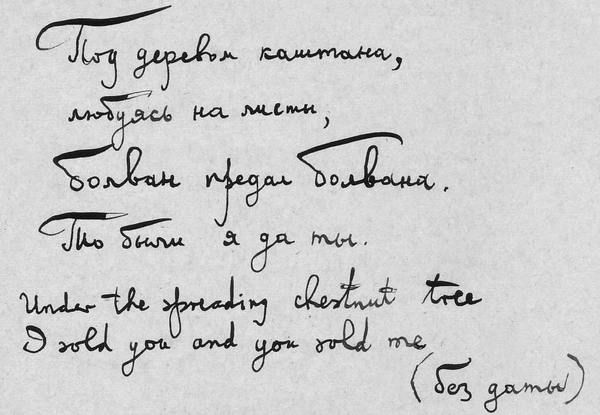 Под деревом каштана,
любуясь на листы,
болван предал болвана.
То были я да ты.
Under the spreading chestnut tree
I sold you and you sold me
(без даты)